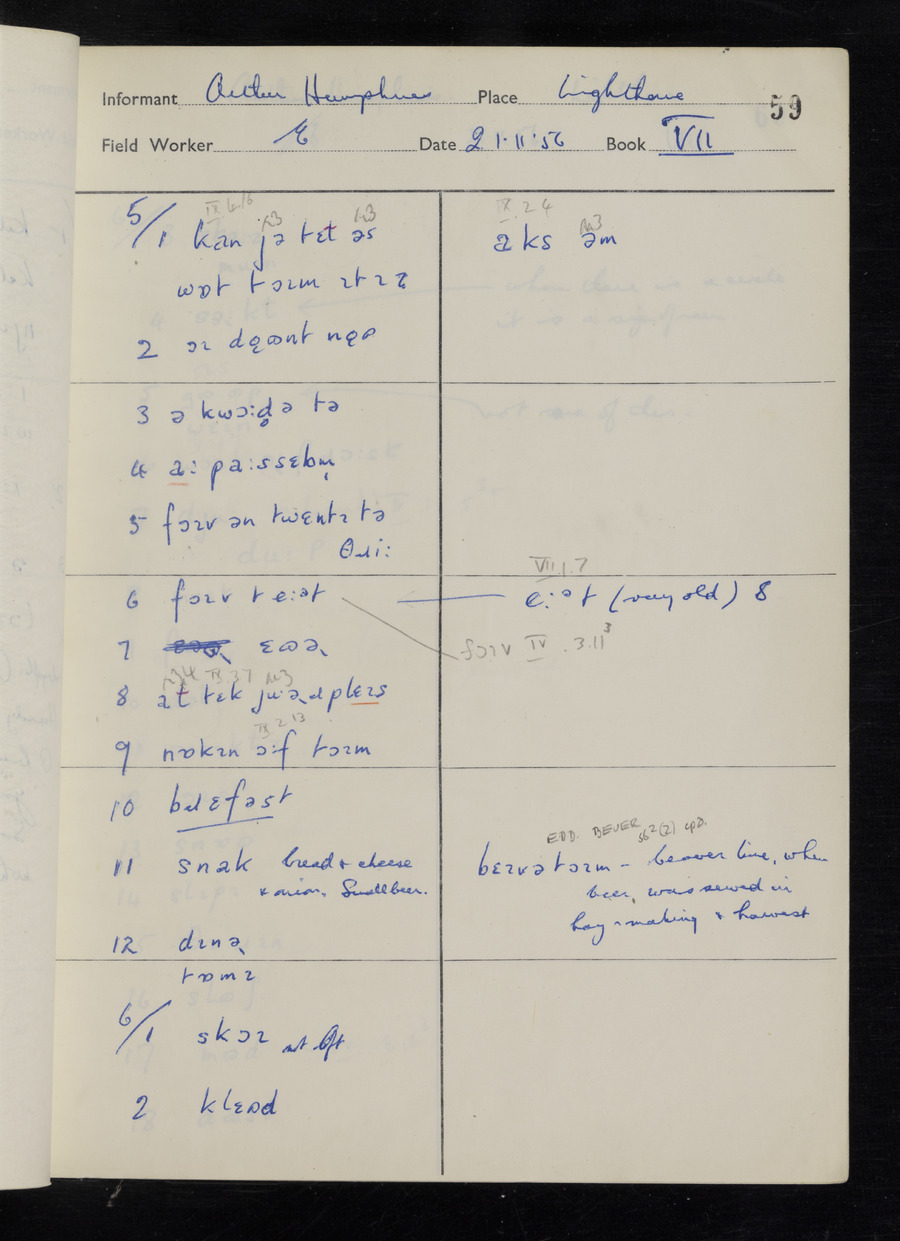 Informant Arthur Humphries Place Lighthorne 59
Field Worker E Date 21·11·56 Book VII
5/1 kan jə tɛt əs
wɒt tɔɪm ɪt ɪz
2 ɔɪ dɞʊnt nɞʊ
3 ə kwɔ:d̥ə tə
4 a: pa:ssɛbm̩
5 fɔɪv ən twɛntɪ tə
θɹi:
6 fɔɪv t e:ət
7 ɛʊə
8 at tɛk jʊəɹ plɛɪs
9 nɒkɪn ɔ:f tɔɪm
10 bɹɛfəst
11 snak bread & cheese
& onion. Small beer.
12 dɪnə
tɒmɪ
6/1 skɔɪ not lift
2 klɛʊd
IX. 2 4
aks əm
VII.1.7
e:ət (very old) 8
fɔɪv IV .3.11³
EDD. BEVER sb²(2) cpd.
bɛɪvətɔɪm - beaver time, when
beer, was served in
hay-making & harvest